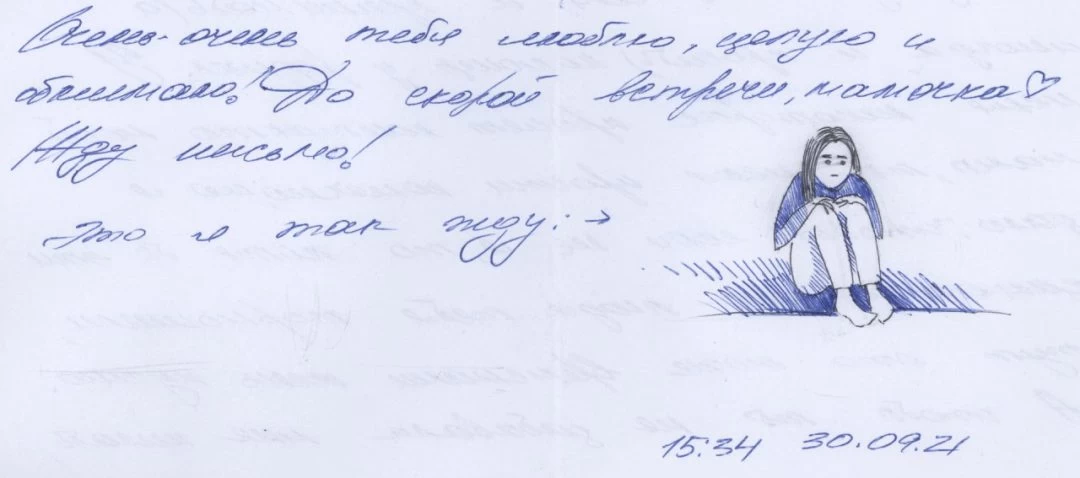 Очень-очень тебя люблю, целую и
обнимаю! До скорой встречи, мамочка♡
Жду письмо!
Это я так жду: →
15:34 30.09.21